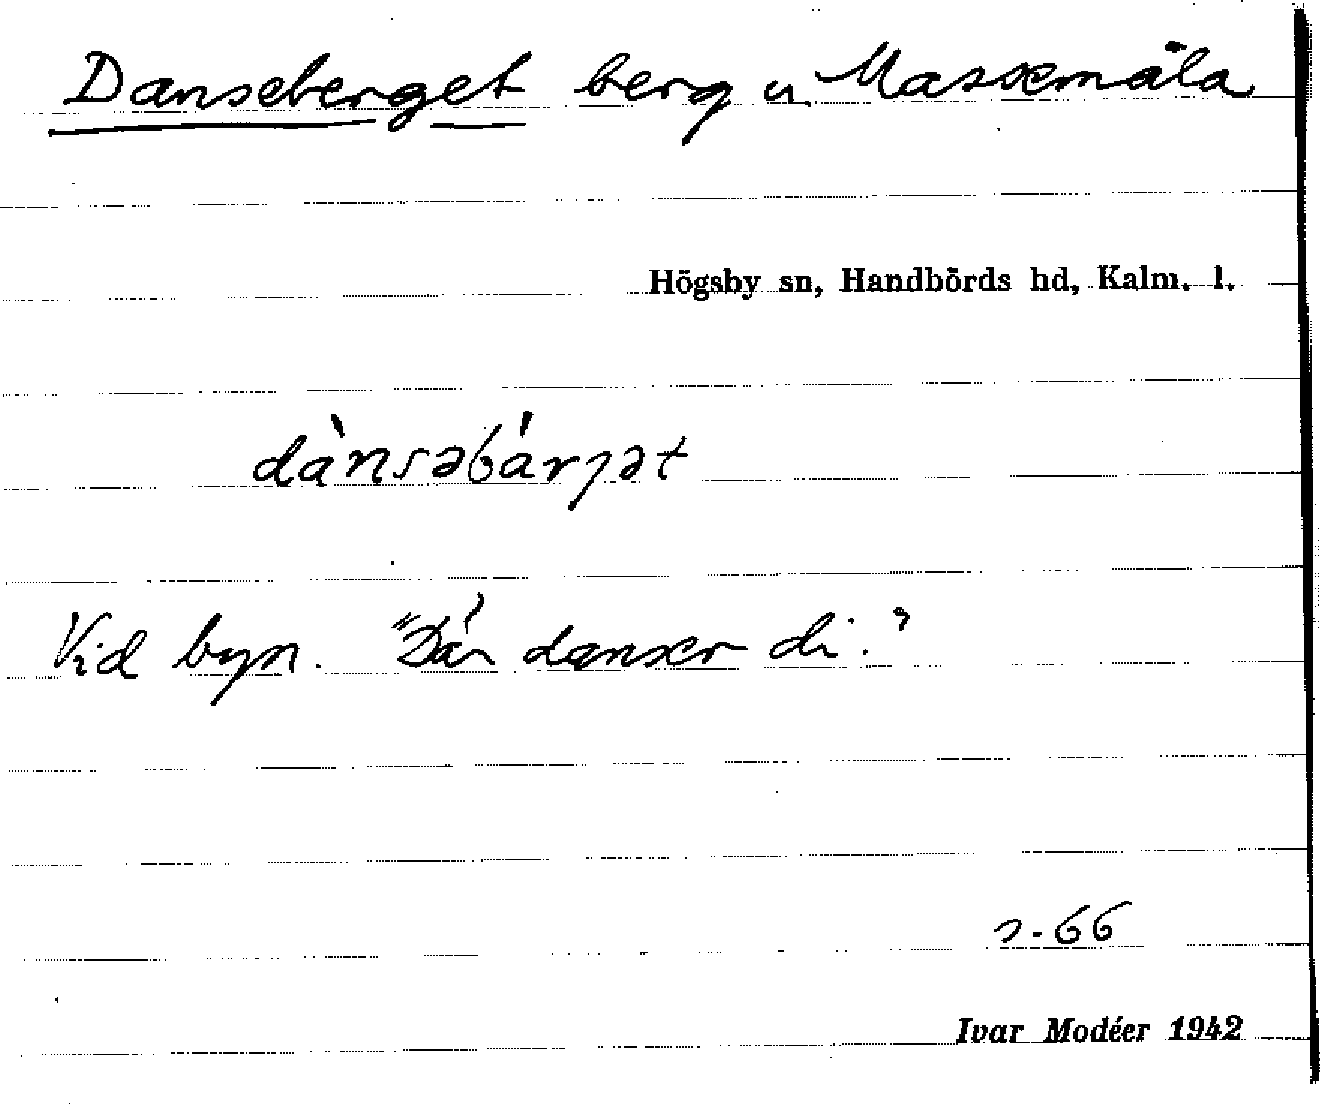 Danseberget berg u. Massemåla
Högsby sn, Handbörds hd, Kalm. l.
dànsəbárjət
Vid byn. "Där danser di."
s. 66
Ivar Modéer 1942